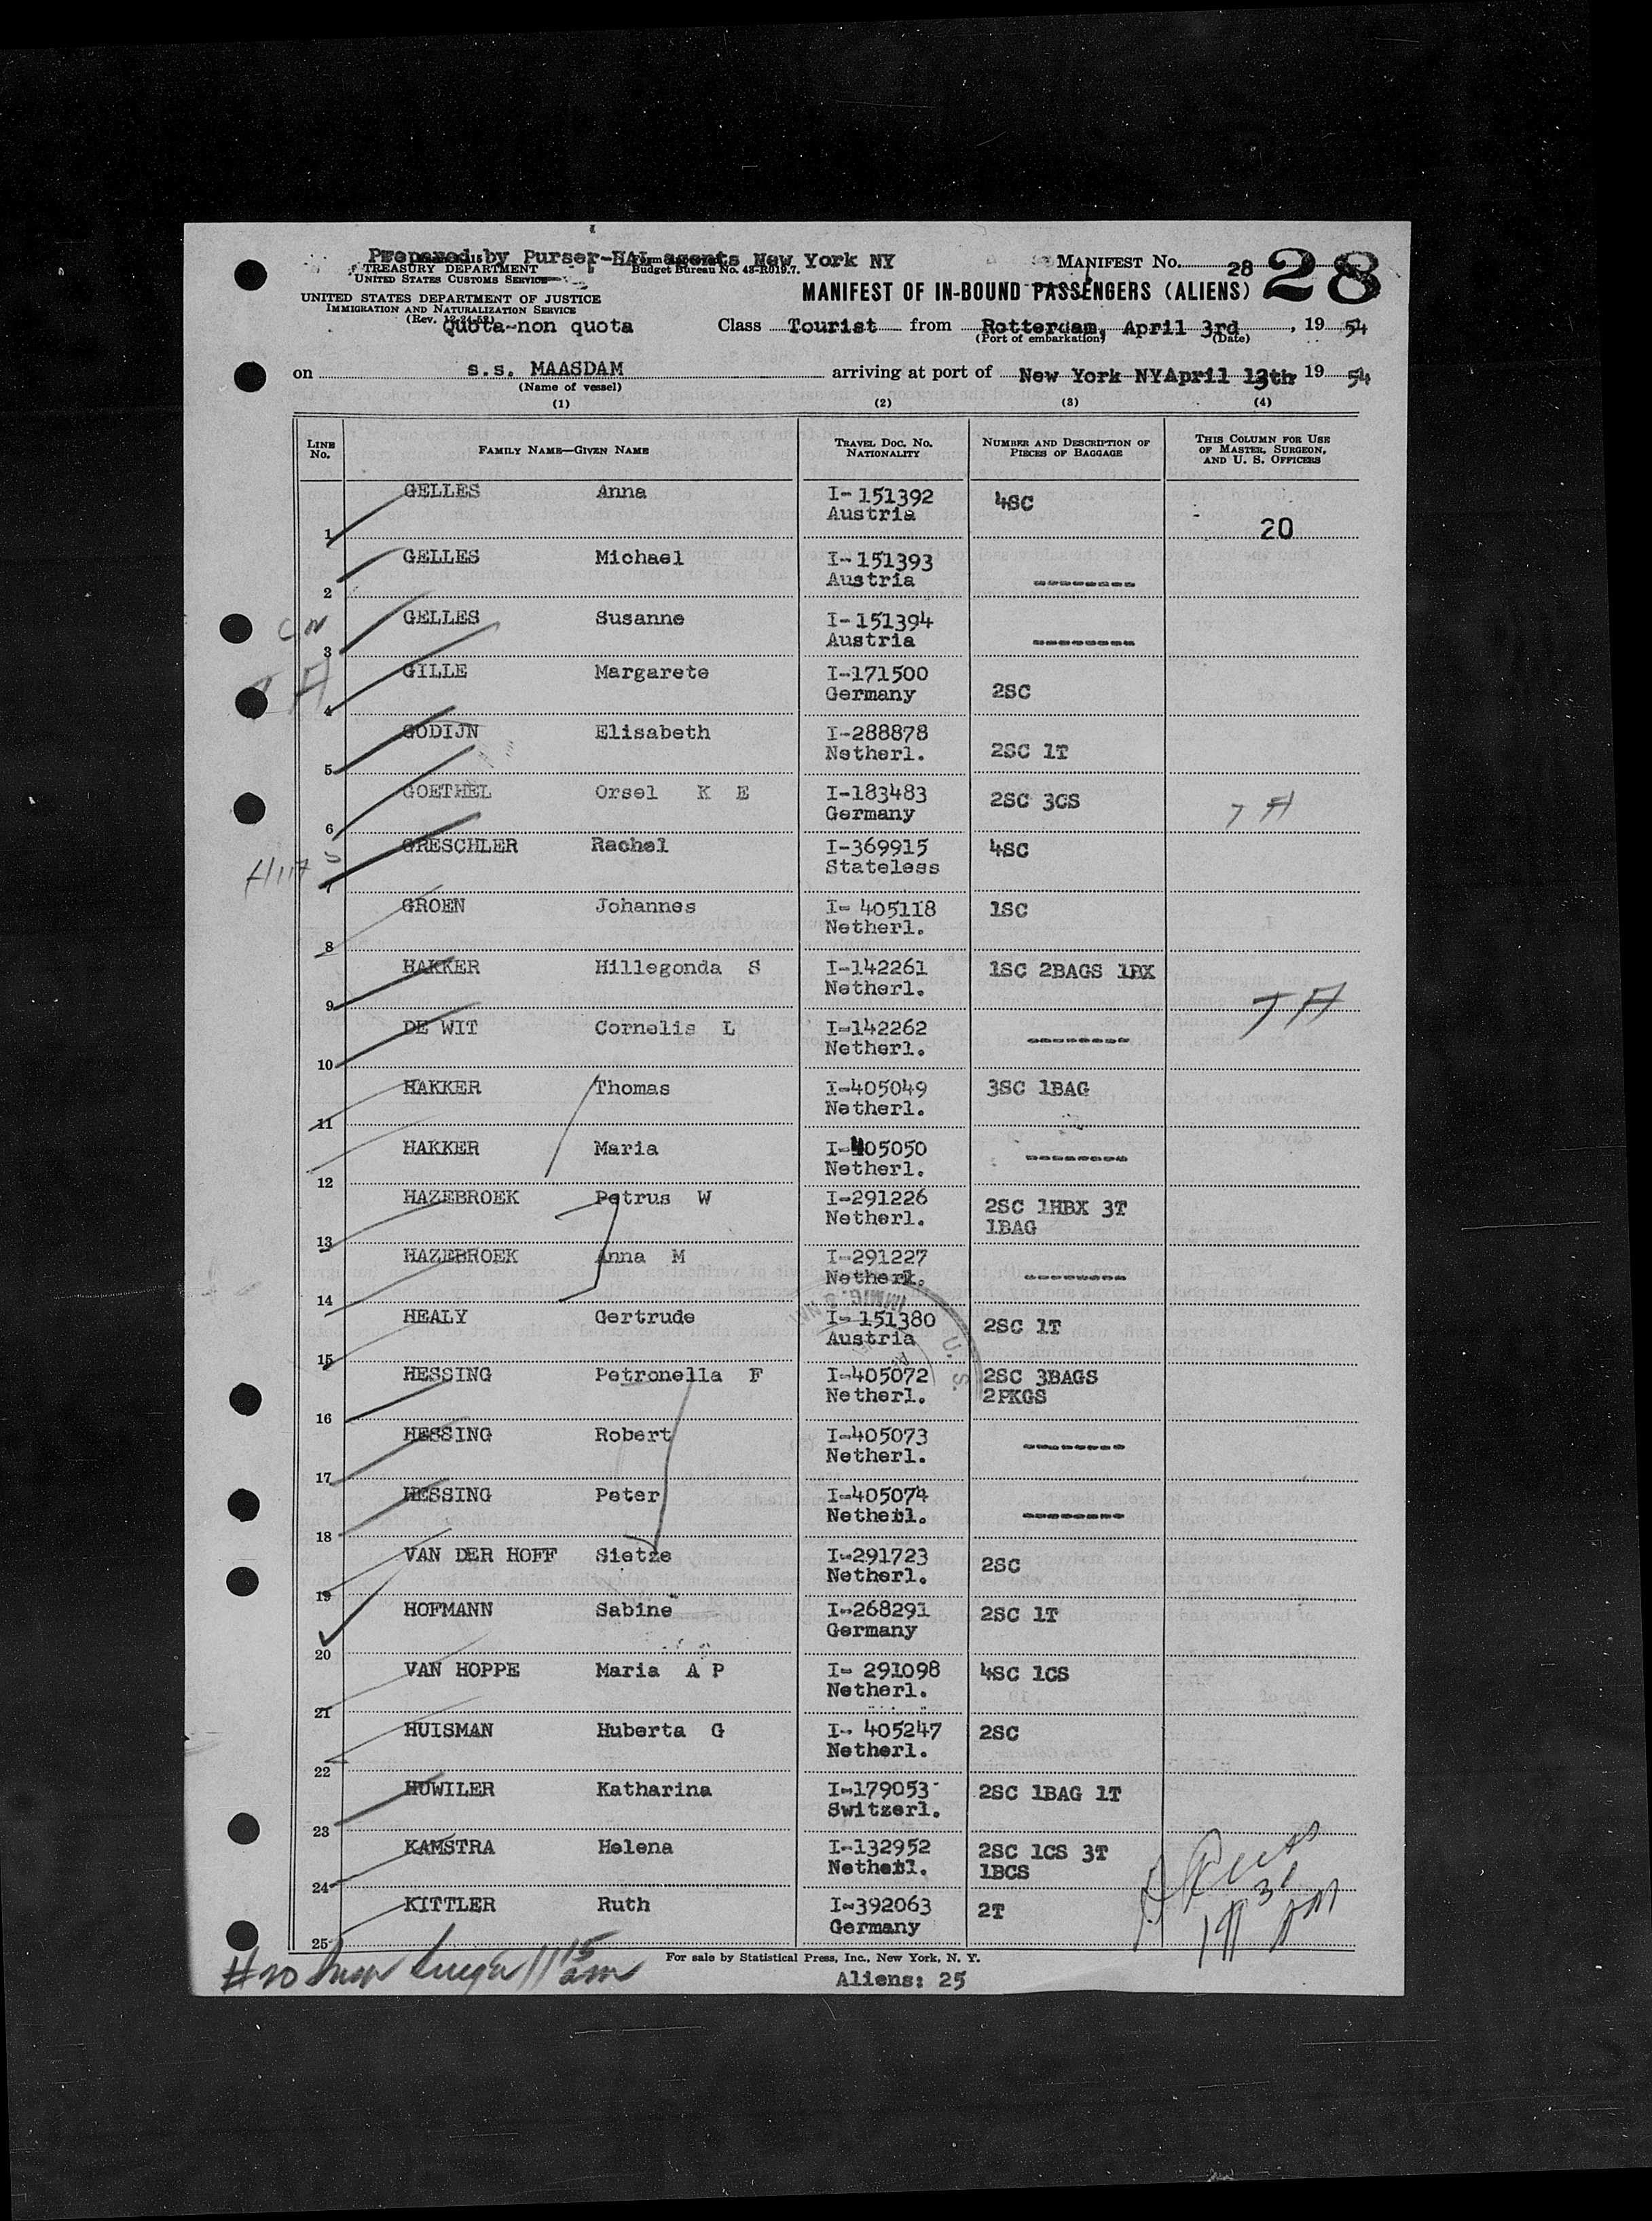 Prepared by Purser-HAL agents New York NY
TREASURY DEPARTMENT
UNITED STATES CUSTOMS SERVICE
Budget Bureau No. 43-R019.7.
MANIFEST NO. 28 28
UNITED STATES DEPARTMENT OF JUSTICE
IMMIGRATION AND NATURALIZATION SERVICE
(Rev. 12-24-52)
MANIFEST OF IN-BOUND PASSENGERS (ALIENS)
Quota-non quota Class Tourist from Rotterdam, April 3rd, 19 54
(Port of embarkation) (Date)
on s.s. MAASDAM arriving at port of New York NY April 13th 19 54
(Name of vessel)
(1) (2) (3) (4)
LINE NO. FAMILY NAME—GIVEN NAME TRAVEL DOC. NO. NATIONALITY NUMBER AND DESCRIPTION OF PIECES OF BAGGAGE THIS COLUMN FOR USE OF MASTER, SURGEON, AND U. S. OFFICERS
1 GELLES Anna I-151392 Austria 4SC 20
2 GELLES Michael I-151393 Austria --------
3 GELLES Susanne I-151394 Austria --------
4 GILLE Margarete I-171500 Germany 2SC
5 GODIJN Elisabeth I-288878 Netherl. 2SC 1T
6 GOETHEL Orsel K E I-183483 Germany 2SC 3CS
7 GRESCHLER Rachel I-369915 Stateless 4SC
8 GROEN Johannes I- 405118 Netherl. 1SC
9 HAKKER Hillegonda S I-142261 Netherl. 1SC 2BAGS 1BX
10 DE WIT Cornelis L I-142262 Netherl. --------
11 HAKKER Thomas I-405049 Netherl. 3SC 1BAG
12 HAKKER Maria I-405050 Netherl. --------
13 HAZEBROEK Petrus W I-291226 Netherl. 2SC 1HBX 3T 1BAG
14 HAZEBROEK Anna M I-291227 Netherl. --------
15 HEALY Gertrude I- 151380 Austria 2SC 1T
16 HESSING Petronella F I-405072 Netherl. 2SC 3BAGS 2PKGS
17 HESSING Robert I-405073 Netherl. --------
18 HESSING Peter I-405074 Netherl. --------
19 VAN DER HOFF Sietze I-291723 Netherl. 2SC
20 HOFMANN Sabine I-268291 Germany 2SC 1T
21 VAN HOPPE Maria A P I- 291098 Netherl. 4SC 1CS
22 HUISMAN Huberta G I- 405247 Netherl. 2SC
23 HUWILER Katharina I-179053 Switzerl. 2SC 1BAG 1T
24 KAMSTRA Helena I-132952 Netherl. 2SC 1CS 3T 1BCS
25 KITTLER Ruth I-392063 Germany 2T
For sale by Statistical Press, Inc., New York, N. Y.
Aliens: 25